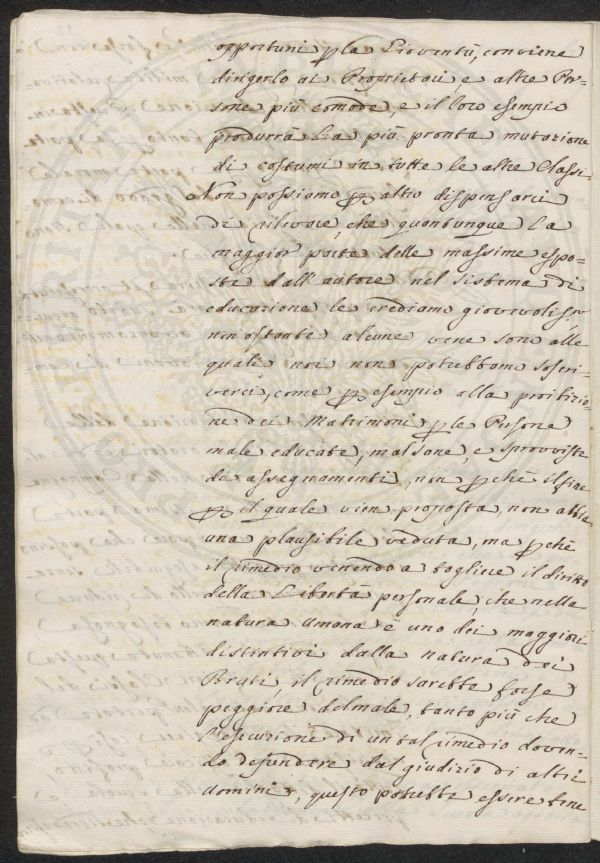 opportuni p la Gioventù, conviene
dirigerlo ai Proprietari, e altre Per-
sone più comode, e il loro esempio
produrrà la più pronta mutazione
di costumi in tutte le altre Classi.
Non possiamo p altro dispensarci
di rilevare, che quantunque la
maggior parte delle massime espo-
ste dall'autore nel sistema di
educazione le crediamo giovevoliss
non ostante alcune vene sono alle
quali noi non potrebbamo soscri-
verci, come p esempio alla proibizio-
ne dei Matrimoni p le Persone
male educate, malsane, e sprovviste
di assegnamenti, non p chè il fine
p il quale vien proposta, non abbia
una plausibile veduta, ma p chè
il rimedio venendo a togliere il diritto
della Libertà personale, che nella
natura umana è uno dei maggiori
distintivi dalla natura dei
Bruti, il rimedio sarebbe forse
peggiore del male, tanto più che
l'esecuzione di un tal rimedio doven-
do dependere dal giudizio di altri
uomini, questo potrebbe essere bene